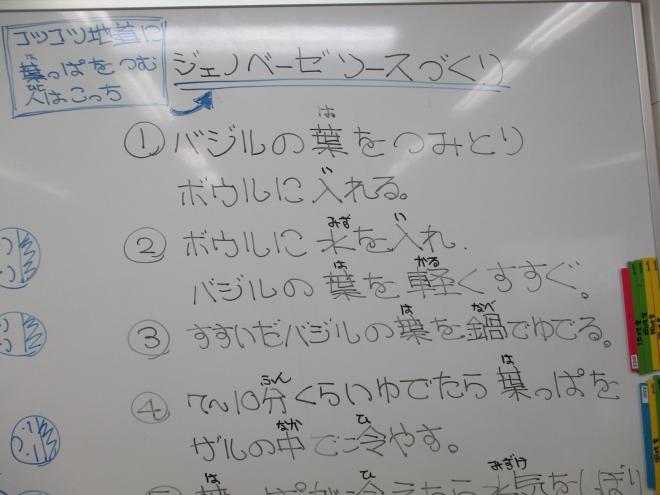 コツコツ地道に
葉っぱをつむ
人はこっち
ジェノベーゼソースづくり
① バジルの葉をつみとり
ボウルに入れる。
② ボウルに水を入れ、
バジルの葉を軽くすすぐ。
③ すすいだバジルの葉を鍋でゆでる。
④ 7~10分くらいゆでたら葉っぱを
ザルの中で冷やす。
葉っぱが冷えたら水気をしぼり